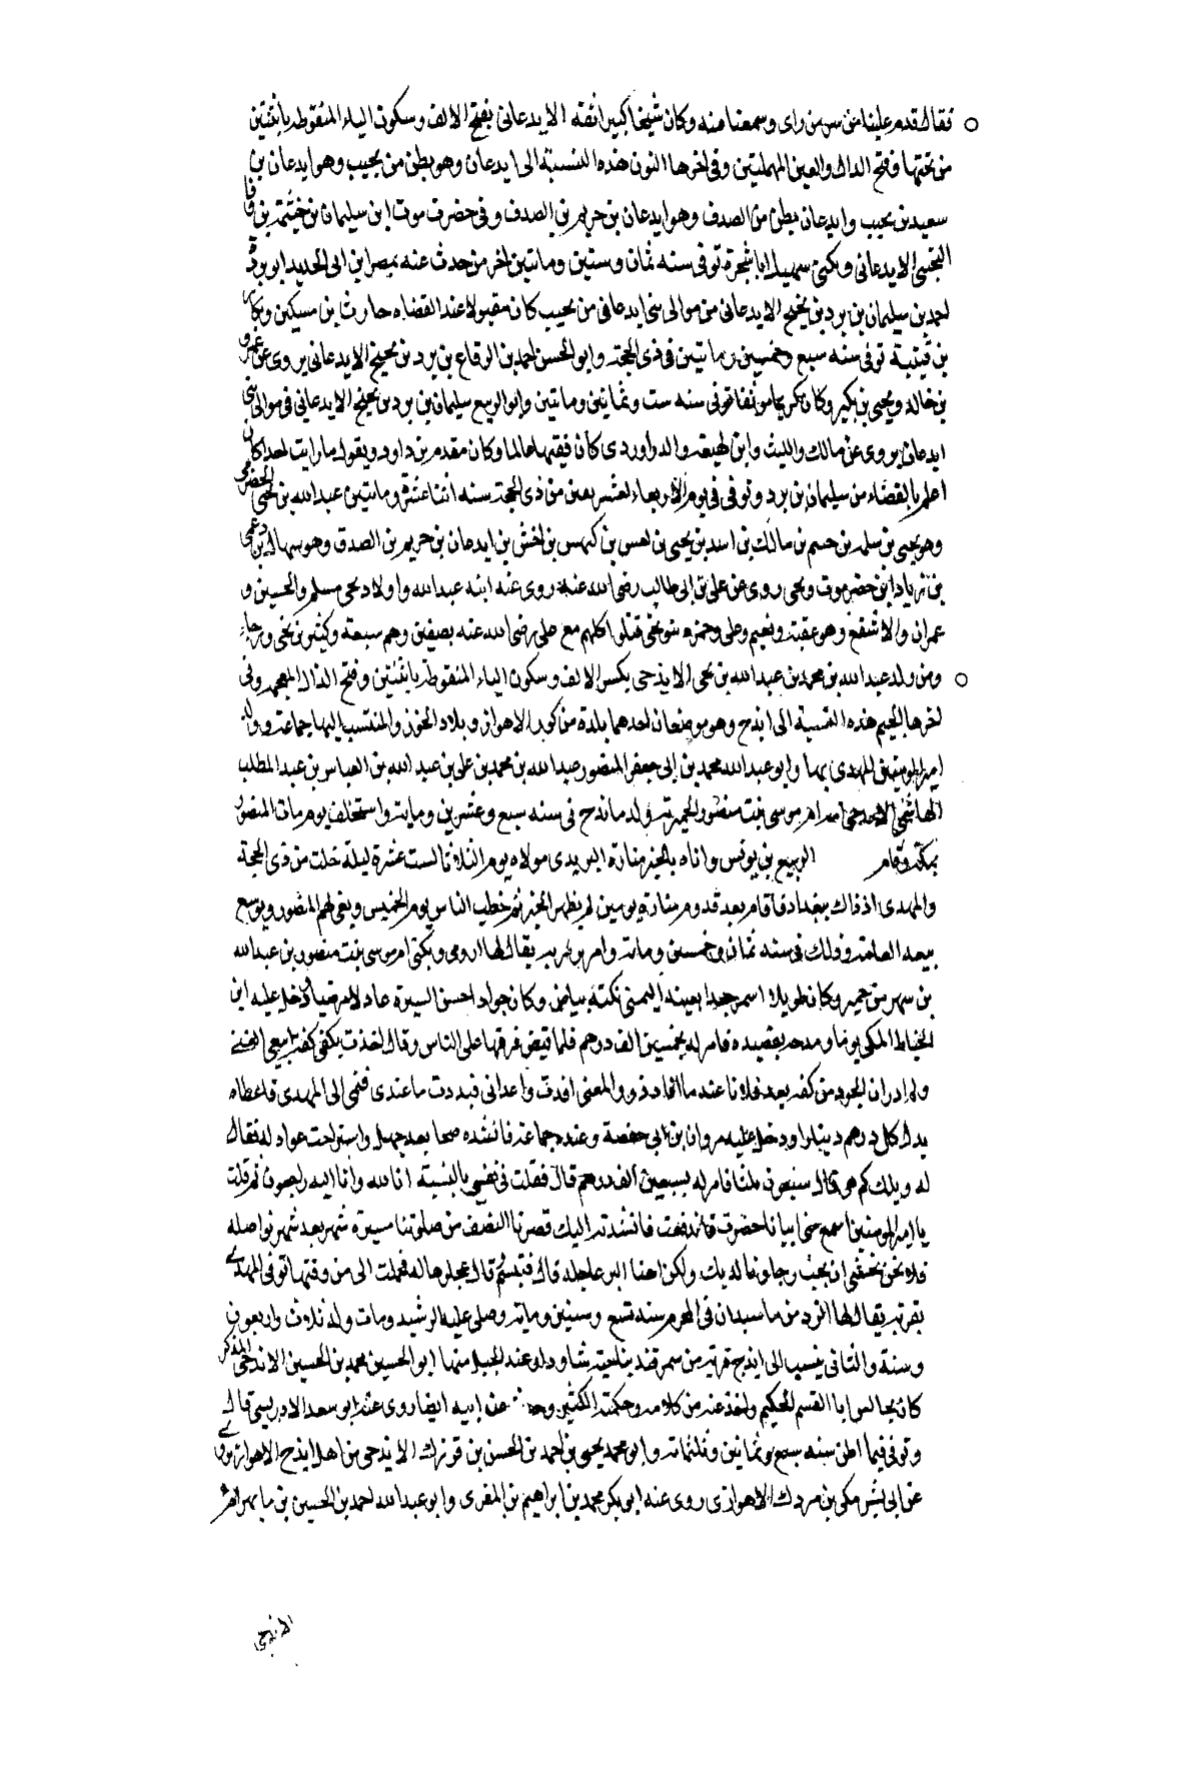 فقال قدم علينا من سر من راى وسمعنا منه وكان شيخا كبيرا ثقة الايدعانى بفتح الالف وسكون الياء المنقوطه باثنتين
من تحتها وفتح الدال والعين المهملتين وفى اخرها النون هذه النسبة الى ايدعان وهو بطن من تجيب وهو ايدعان بن
سعيد بن تجيب وايدعان بطن من الصدف وهو ايدعان بن حريم بن الصدف وفى حضرموت ابن سليمان بن خيثمة بن
التجيبى الايدعانى ويكنى سهيل ابا شجرة توفى سنه ثمان وستين ومائتين اخر من حدث عنه بمصر ابن ابى الحديد ابو برد
احمد بن سليمان بن برد بن نجيح الايدعانى من موالى بنى ايدعانى من تجيب كان مقبولا عند القضاه حارث بن مسكين وبكار
بن قتيبة توفى سنه سبع وخمسين ومائتين فى ذى الحجة وابو الحسن احمد بن الرقاع بن برد بن نجيح الايدعانى يروى عن عمرو
بن خالد ويحيى بن بكير وكان كريما موثقا توفى سنه ست وثمانين ومائتين وابو الربيع سليمان بن برد بن نجيح الايدعانى فى موالى بنى
ايدعان يروى عن مالك والليث وابن لهيعة والدراوردى كان فقيها عالما وكان مقدم بن داود ويقول ما رايت احدا كان
اعلم بالقضاء من سليمان بن برد وتوفى فى يوم الاربعاء لعشر بقين من ذى الحجة سنه اثنتا عشرة ومائتين عبد الله بن نجى الحضرمى
وهو نجى بن سلمه بن حسم بن مالك بن اسد بن نجى بن بن ايدعان بن حريم بن الصدف وهو سهال بن دعمى
بن زياد ابن حضرموت ونجى روى عن على بن ابى طالب رضى الله عنه روى عنه ابنه عبد الله واولاد نجى مسلم والحسين و
عمران والاشفع وهو عقبة ونعيم وعلى وحمزه بنو نجى قتلوا كلهم مع على رضى الله عنه بصفين وهم سبعة وكثير بن نجى ورجاء
ومن ولد عبد الله بن محمد بن عبد الله بن نجى الايذجى بكسر الالف وسكون الياء المنقوطة باثنتين وفتح الذال المعجمه وفى
اخرها الجيم هذه النسبة الى ايذج وهو موضعان احدهما بلدة من كور الاهواز وبلاد الخوز والمنتسب اليها جماعة وولد
امير المومنين المهدى بها وابو عبد الله محمد بن ابى جعفر المنصور عبد الله بن محمد بن على بن عبد الله بن العباس بن عبد المطلب
الهاشمى امه ام موسى بنت منصور الحميرية ولد بايذج فى سنه سبع وعشرين ومايه واستخلف يوم مات المنصور
بمكة وقام الربيع بن يونس واتاه بالخبر منارة البريدى مولاه يوم الثلاثا لست عشرة ليلة خلت من ذى الحجة
والمهدى اذ ذاك ببغداد فاقام بعد قدوم منارة يومين لم يظهر الخبر ثم خطب الناس يوم الخميس ونعى لهم المنصور وبويع
بيعه العامة وذلك فى سنه ثمان وخمسين ومائه وام يقال لها اروى وتكنى ام موسى بنت منصور بن عبد الله
بن سهر من حمير وكان طويلا اسمر جعدا بعينه اليمنى نكتة بياض وكان جوادا حسن السيرة عادلا دخل عليه ابن
الخياط المكى يوما ومدحه بقصيده فامر له بخمسين الف درهم فلما قبض فرقها على الناس وقال اخذت بكفى كفه ابتغى الغنى
ولم ادر ان الجود من كفه يعد فلا انا عند ما افاد ذوو المعنى افدت واعدانى فبددت ما عندى فنمى الى المهدى فاعطاه
بدل كل درهم دينارا ودخل عليه مروان بن ابى حفصة وعنده جماعة فانشده صحا بعد جهل واستراحت عواذله فقال
له ويلك كم هو قال سبعون بيتا فامر له بسبعين الف درهم قال فقلت فى نفسى بالنسية انا لله وانا اليه راجعون ثم قلت
يا امير المومنين اسمع منى ابياتا حضرت فانشدته اليك قصرنا النصف من صلوتنا مسيرة شهر بعد شهر نواصله
فلا نحن نخشى ان يخيب رجاونا لديك ولكن اهنا البر عاجله قال فتبسم قال عجلوها له فحملت الى من وقتها توفى المهدى
بقرية يقال لها الرذ من ماسبذان فى المحرم سنه تسع وستين ومايه وصلى عليه الرشيد ومات وله ثلاث واربعون
وسنة والثانى ينسب الى ايذج قرية من سمرقند بناحية شاودار عند الجبل منها ابو الحسين محمد بن الحسين الايذجى المذكر
كان يجالس ابا القسم الحكيم واخذ عنه من كلامه وحكمته الكثير عن ابيه ايضا روى عنه ابو سعد الادريسى قال
وتوفى فيما اظن سنه سبع وثمانين وثلثمائه وابو محمد يحيى بن احمد بن الحسن بن فورك الايذجى من اهل ايذج الاهواز يروى
عن ابى بشر مكى بن مردك الاهوازى روى عنه ابو بكر محمد بن ابراهيم بن المقرى وابو عبد الله احمد بن الحسين بن ما بهرام
الايذجى